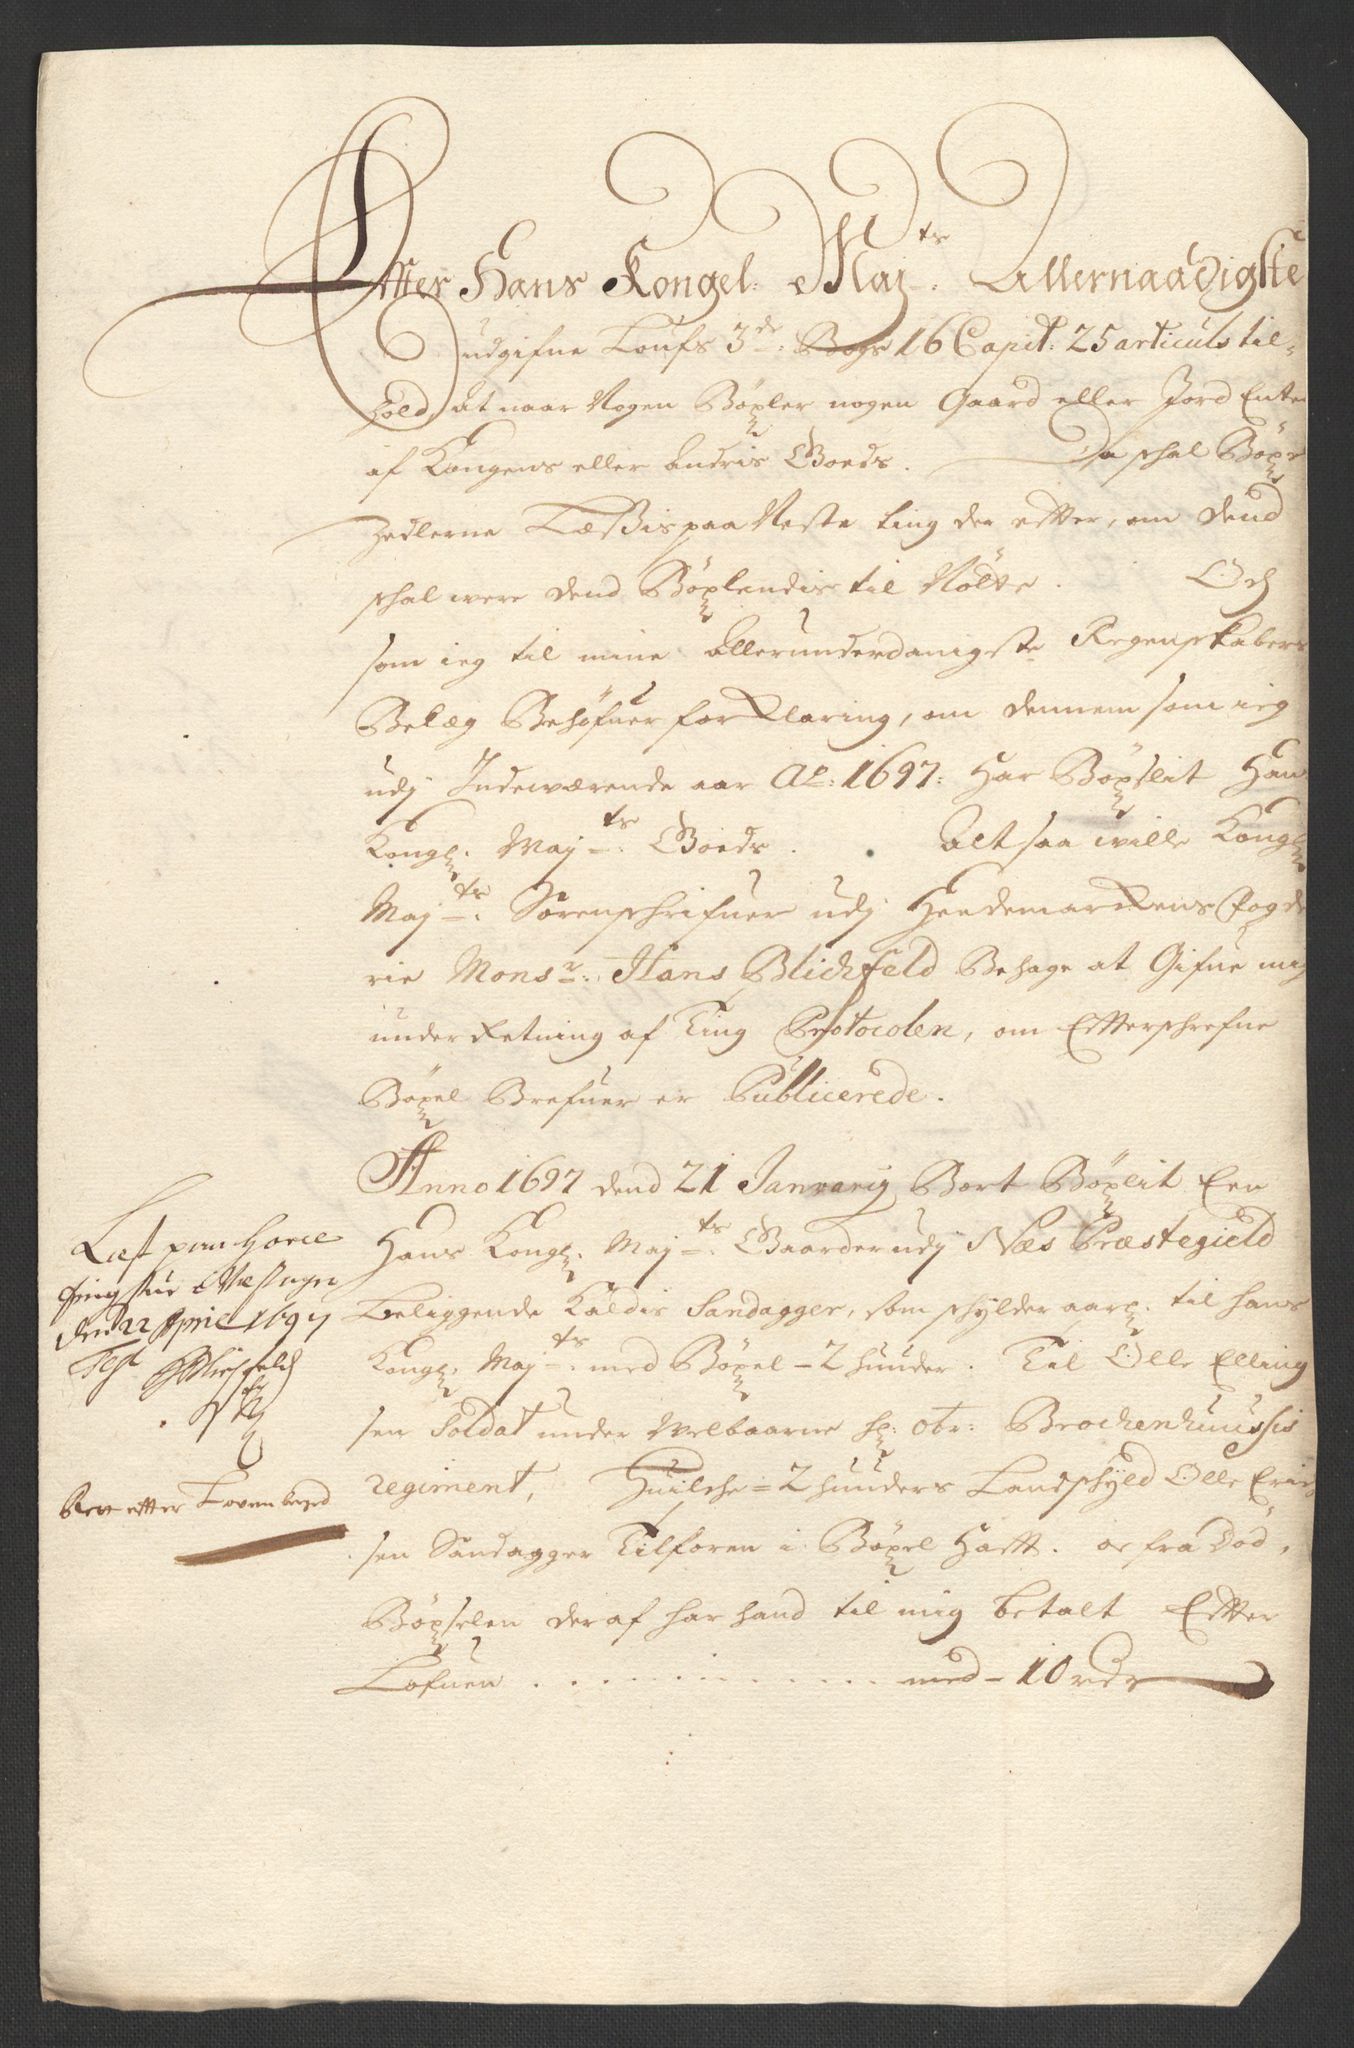 Effter Hans Kongel: Maj.ts Allernaadigste
udgifne Loufs 3de: Bogs 16 Capit: 25 articuls til-
hold, at naar Nogen Böxler nogen Gaard eller Jord Enten
af Kongens eller Andris Goeds. Da schal Böxel
Zedlerne Læßis paa Neste ting der effter, om dend
schal were dend Böxlendis til Nötte. Och
som ieg til mine Allerunderdanigste Regenskabers
Belæg Behöfuer forKlaring, om dennem som ieg
udj Indeværende aar Ao: 1697: Har Böxslit Hans
Kongl. Maj.ts Goeds. Alt saa wille Kongl.
Maj.ts Sorenschrifuer udj HeedemarKens Fogde
rie Monsr: Hans Blichfeld Behage at Gifue mig
underRetning af Ting Protocolen, om Effterschrefne
Böxel Brefuer er Publicerede.
Anno 1697 dend 21 Janvarij Bort Böxlit Een
Hans Kongl. Maj.ts Gaarder udj Næs Præstegield
beliggende Kaldis Sandagger, som schylder aarl. til hans
Kongl. Maj.ts med Böxel - 2 huuder. Til Olle Elling
sen Soldat under Welbaarne Hr: Obr: Brochenhuussis
regiment, Huilche = 2 huuders Landschyld Olle Erich
sen Sandagger Tilforen i Böxel Hafft. oc fra Död,
Böxselen der af har hand til mig betalt Effter
Lofuen . . . . . . . . . . . med - 10 rdr
Læst paa Horce
ting stue
den 22 April 1697
Test HBlichfeld
effter Loven